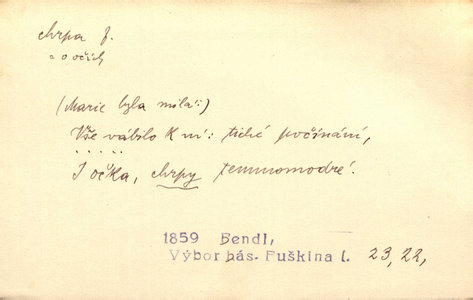 chrpa f.
= o očích
(Marie byla milá:)
Vše vábilo k ní: tiché počínání,
. . . . .
I očka, chrpy temnomodré.
1859 Bendl,
Výbor bás. Puškina I. 23,22,